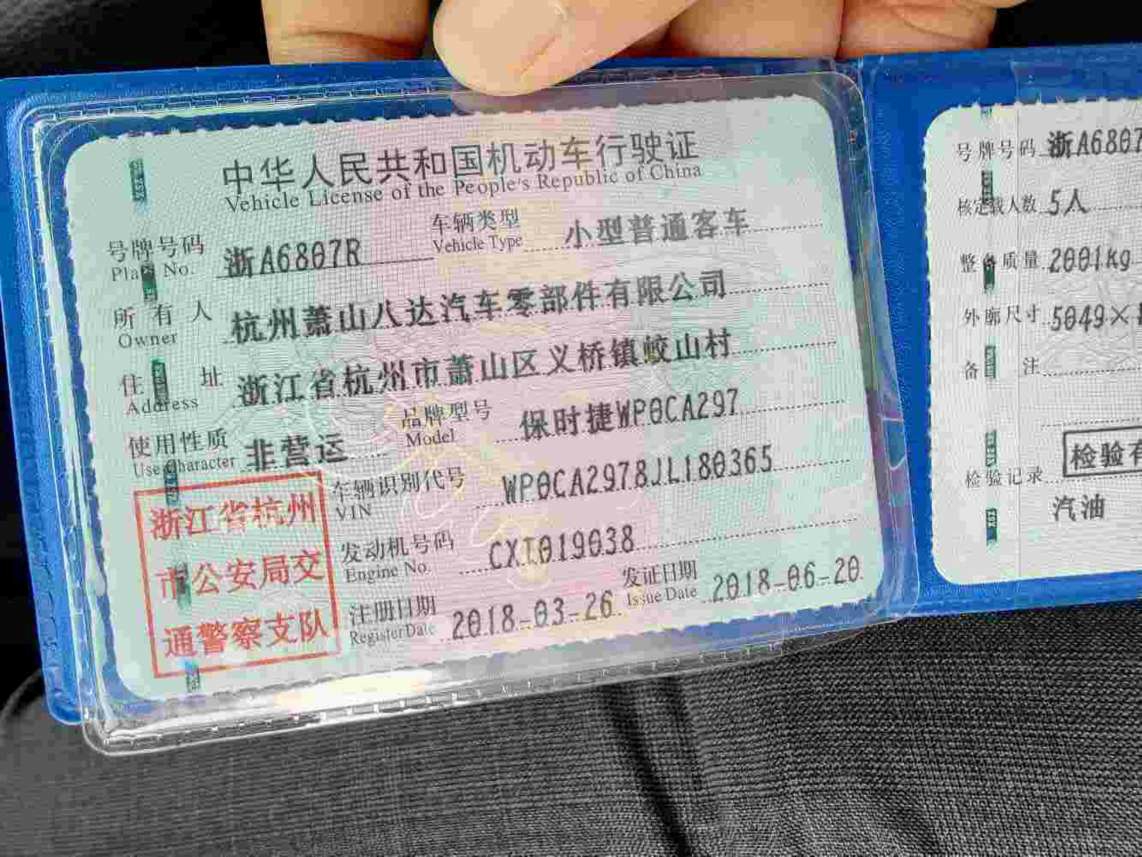 中华人民共和国机动车行驶证
Vehicle License of the People's Republic of China
号牌号码 浙A6807R 车辆类型 小型普通客车
Plate No. Vehicle Type
所有人 杭州萧山八达汽车零部件有限公司
Owner
住址 浙江省杭州市萧山区义桥镇蛟山村
Address
使用性质 非营运 品牌型号 保时捷WP0CA297
Use Character Model
车辆识别代号 WP0CA2978JL180365
VIN
发动机号码 CXT019038
Engine No.
注册日期 2018-03-26 发证日期 2018-06-20
Register Date Issue Date
浙江省杭州
市公安局交
通警察支队
号牌号码 浙A6807
核定载人数 5人
整备质量 2001kg
外廓尺寸 5049×
备注
检验有
检验记录
汽油